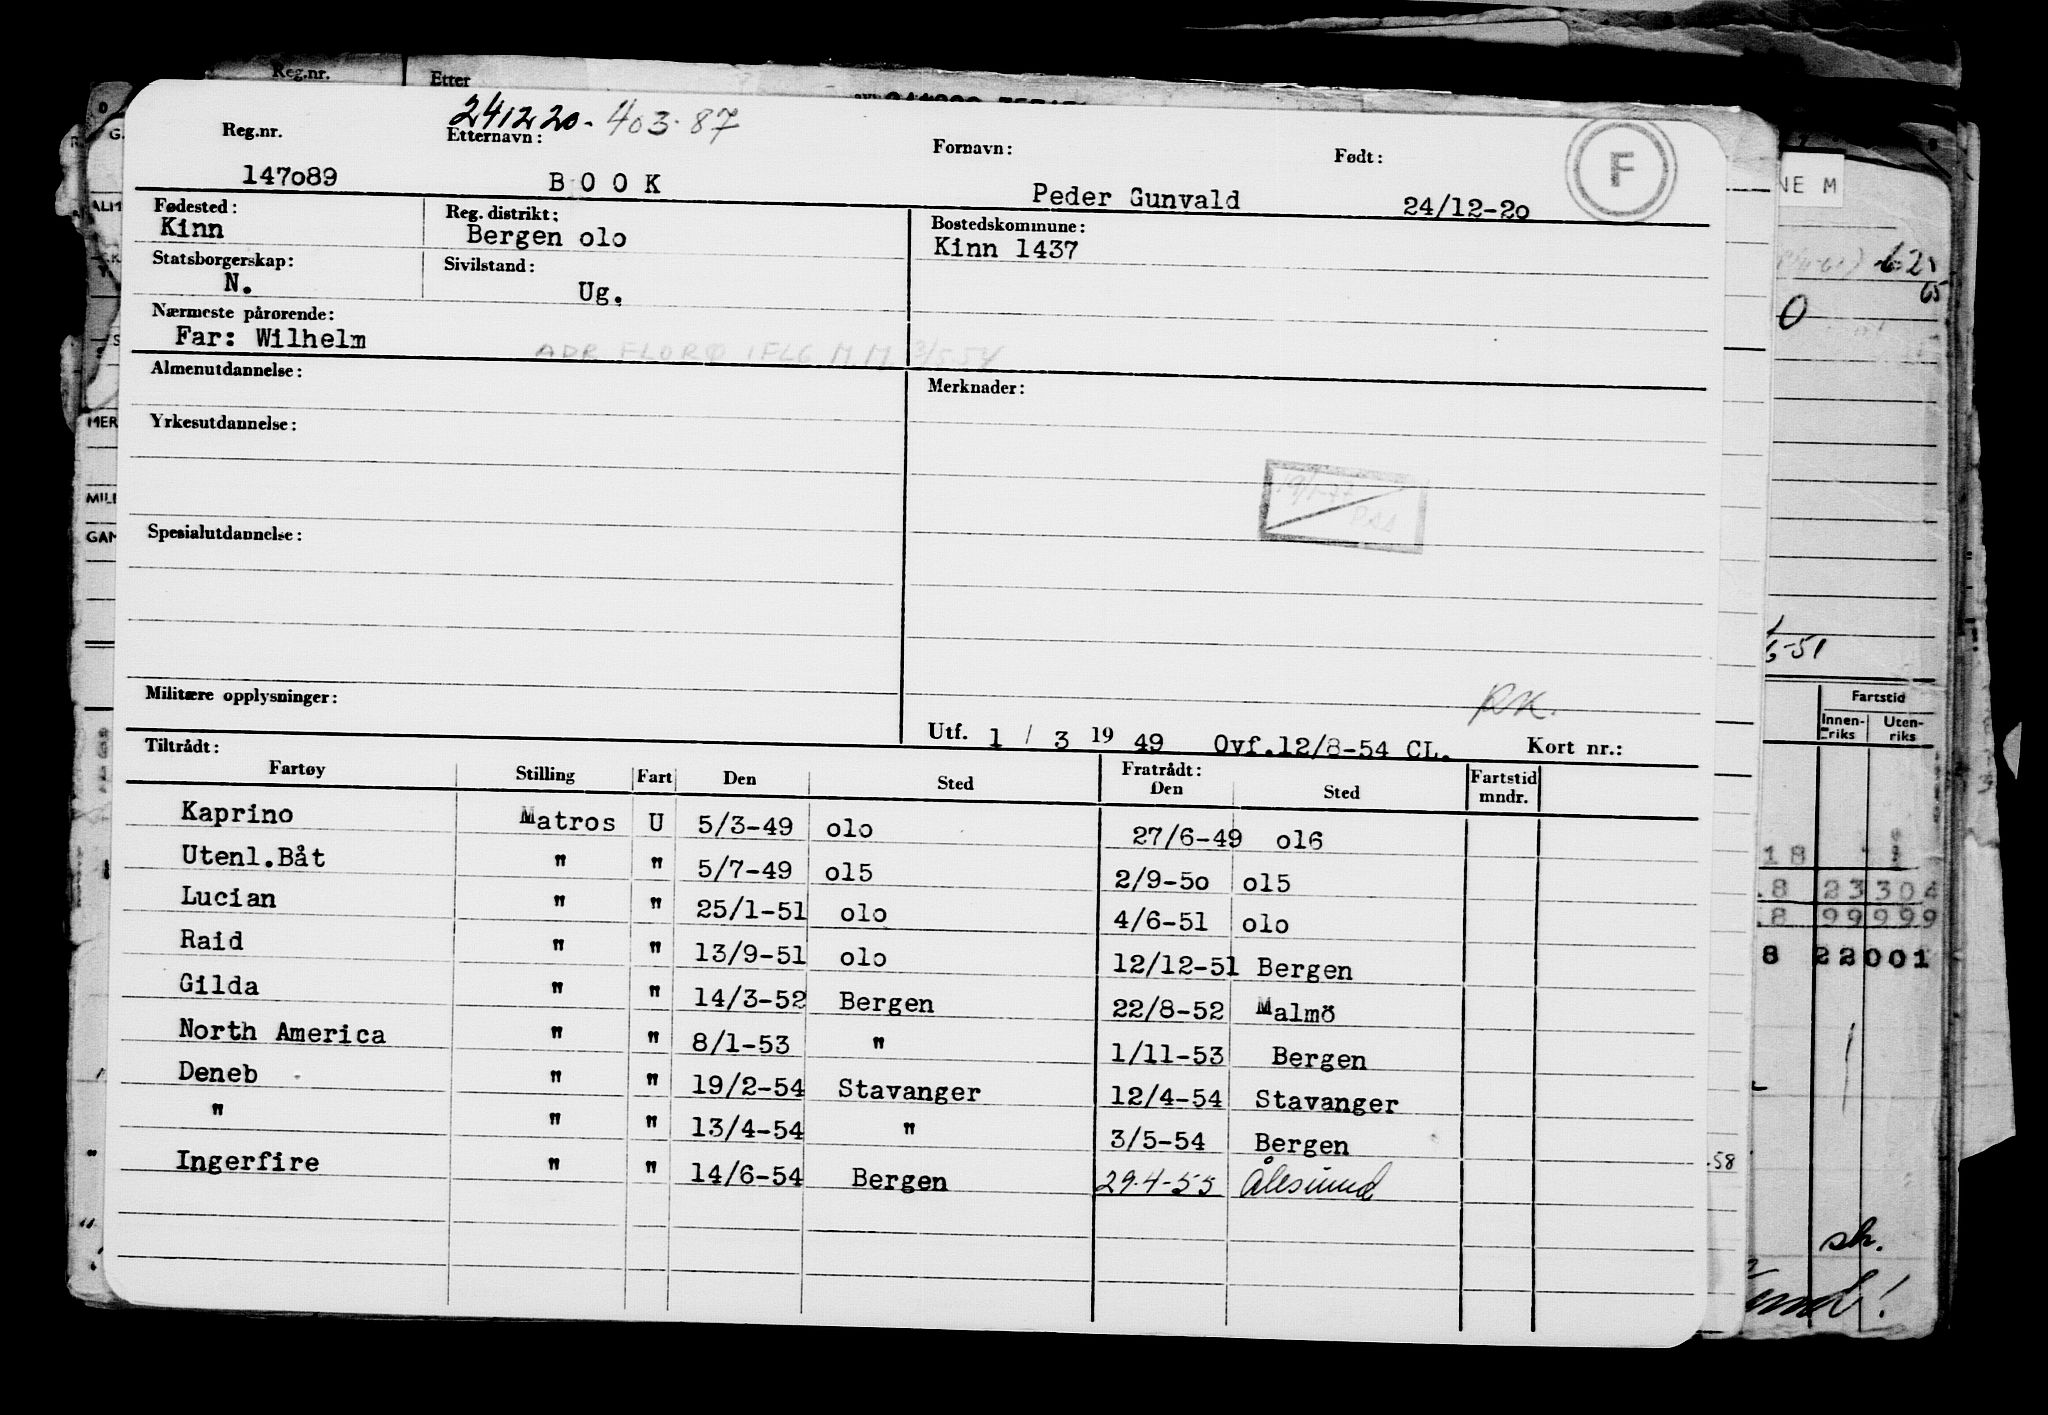 Reg.nr. Etter
241220-403-87
Reg.nr. Etternavn: Fornavn: Født: F
147o89 B O O K Peder Gunvald 24/12-2o
Fødested: Reg. distrikt: Bostedskommune:
Kinn Bergen olo Kinn 1437
Statsborgerskap: Sivilstand:
N. Ug.
Nærmeste pårørende:
Far: Wilhelm ADR FLORØ IFLG M.M. 3/5 54
Almenutdannelse: Merknader:
Yrkesutdannelse:
Spesialutdannelse:
Militære opplysninger:
RK.
Utf. 1 / 3 19 49 Ovf.12/8-54 CL. Kort nr.:
Tiltrådt: Fratrådt:
Fartøy Stilling Fart Den Sted Den Sted Fartstid mndr.
Kaprino Matros U 5/3-49 olo 27/6-49 ol6
Utenl.Båt " " 5/7-49 ol5 2/9-5o ol5
Lucian " " 25/1-51 olo 4/6-51 olo
Raid " " 13/9-51 olo 12/12-51 Bergen
Gilda " " 14/3-52 Bergen 22/8-52 Malmö
North America " " 8/1-53 " 1/11-53 Bergen
Deneb " " 19/2-54 Stavanger 12/4-54 Stavanger
" " " 13/4-54 " 3/5-54 Bergen
Ingerfire " " 14/6-54 Bergen 29.4-55 Ålesund
NE M
62
65
0
6-51
Fartstid
Innen-riks Uten-riks
18
.8 23 304
.8 99 999
8 22001
.58
sk.